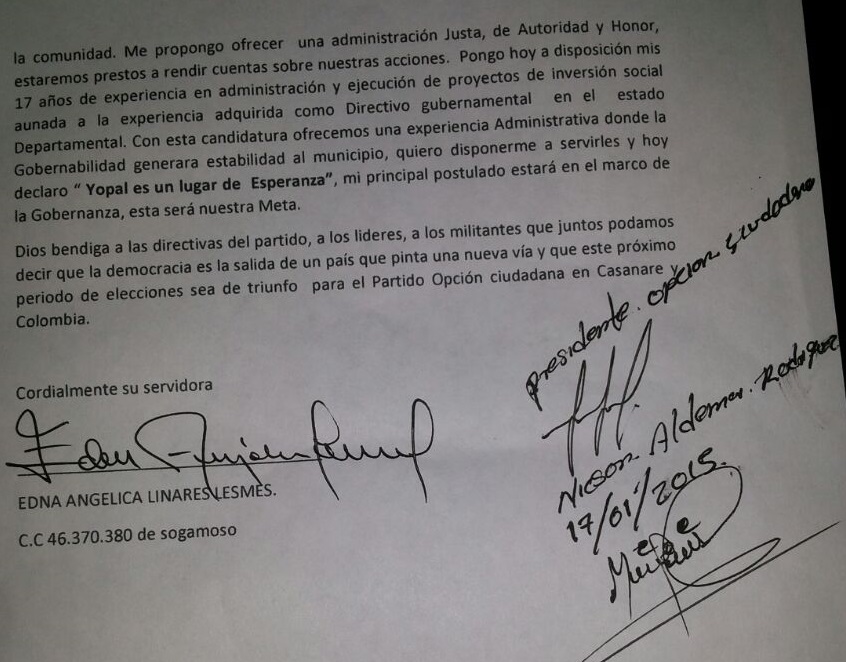 la comunidad. Me propongo ofrecer una administración Justa, de Autoridad y Honor,
estaremos prestos a rendir cuentas sobre nuestras acciones. Pongo hoy a disposición mis
17 años de experiencia en administración y ejecución de proyectos de inversión social
aunada a la experiencia adquirida como Directivo gubernamental en el estado
Departamental. Con esta candidatura ofrecemos una experiencia Administrativa donde la
Gobernabilidad generara estabilidad al municipio, quiero disponerme a servirles y hoy
declaro “ Yopal es un lugar de Esperanza”, mi principal postulado estará en el marco de
la Gobernanza, esta será nuestra Meta.
Dios bendiga a las directivas del partido, a los lideres, a los militantes que juntos podamos
decir que la democracia es la salida de un país que pinta una nueva vía y que este próximo
periodo de elecciones sea de triunfo para el Partido Opción ciudadana en Casanare y
Colombia.
Cordialmente su servidora
EDNA ANGELICA LINARES LESMES.
C.C 46.370.380 de sogamoso
presidente. opcion
Aldemar. Rodriguez
17/01/2015.